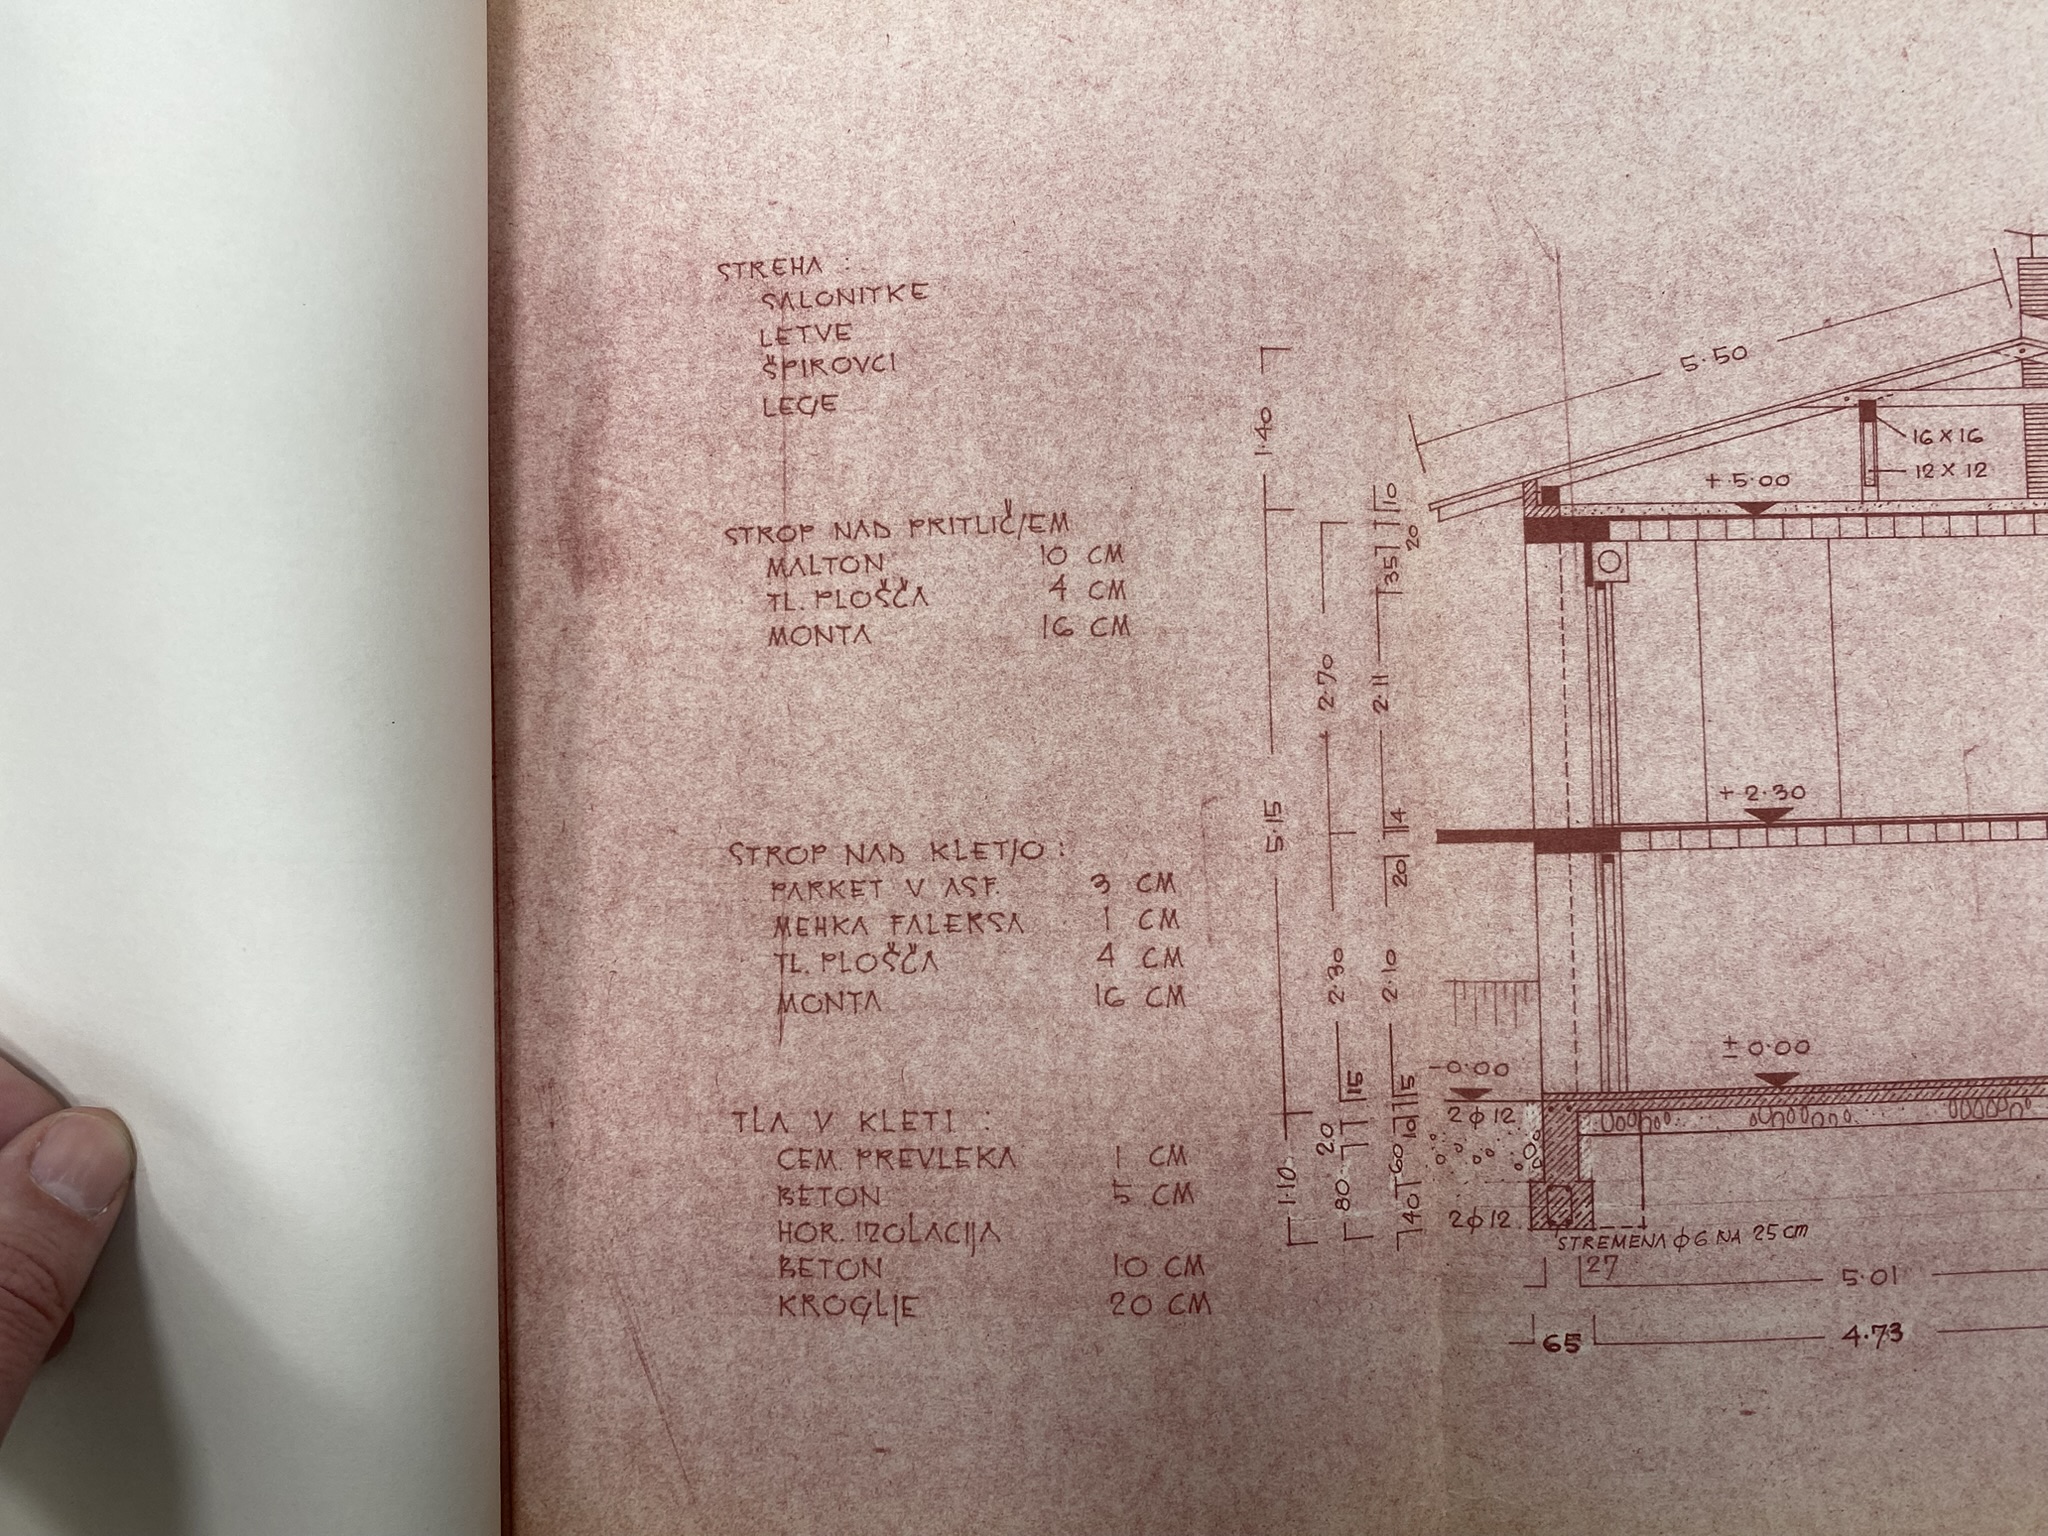 STREHA :
SALONITKE
LETVE
ŠPIROVCI
LEGE
STROP NAD PRITLIČJEM
MALTON 10 CM
TL. PLOŠČA 4 CM
MONTA 16 CM
STROP NAD KLETJO :
PARKET V ASF. 3 CM
MEHKA FALERSA 1 CM
TL. PLOŠČA 4 CM
MONTA 16 CM
TLA V KLETI :
CEM. PREVLEKA 1 CM
BETON 5 CM
HOR. IZOLACIJA
BETON 10 CM
KROGLJE 20 CM
1.40
5.15
1.10
2.70
2.30
15
20
80
10
20
35
2.11
14
20
2.10
15
10
60
40
5.50
16 X 16
12 X 12
+ 5.00
+ 2.30
± 0.00
-0.00
2 ϕ 12
2 ϕ 12
STREMENA ϕ 6 NA 25 cm
27
5.01
65
4.73